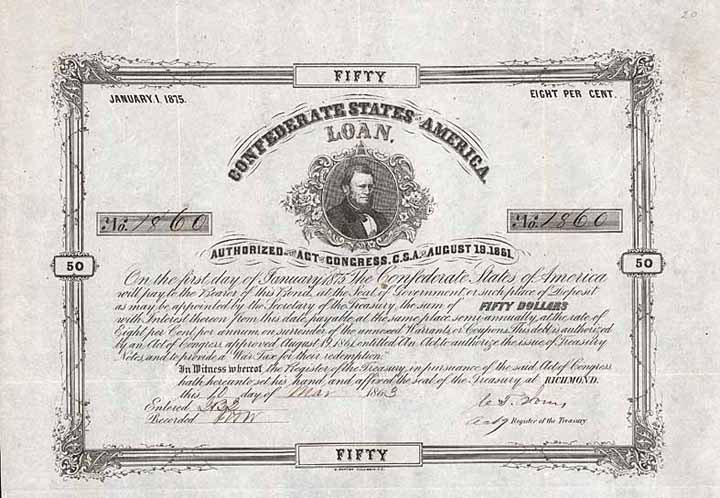 20
FIFTY
JANUARY. 1. 1875.
EIGHT PER CENT.
CONFEDERATE STATES OF AMERICA.
LOAN.
No. 1860
No. 1860
AUTHORIZED BY THE ACT OF CONGRESS, C.S.A. OF AUGUST 19. 1861.
50
50
On the first day of January, 1875 The Confederate States of America
will pay to the Bearer of this Bond, at the Seat of Government, or such place of Deposit
as may be appointed by the Secretary of the Treasury, the sum of FIFTY DOLLARS
with Interest thereon from this date, payable at the same place semi-annually, at the rate of
Eight per Cent per annum, on surrender of the annexed Warrants or Coupons. This debt is authorized
by an Act of Congress approved August 19, 1861, entitled An Act to authorize the issue of Treasury
Notes, and to provide a War Tax for their redemption."
In Witness whereof the Register of the Treasury, in pursuance of the said Act of Congress
hath hereunto set his hand, and affixed the seal of the Treasury, at RICHMOND.
this 10 day of Mar 1863
Entered
Recorded
Register of the Treasury
FIFTY